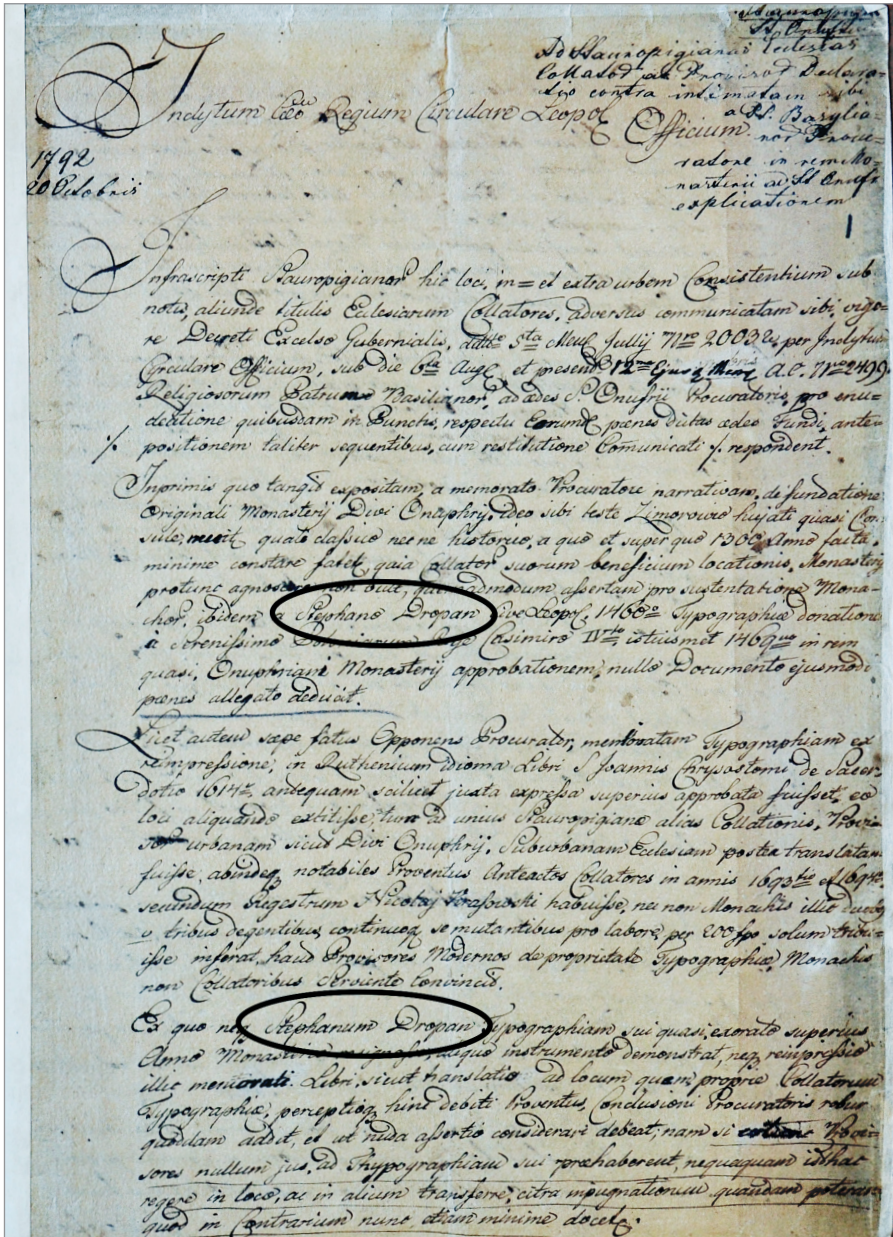 Stauropigian
St. Onufrii
Ad Stauropigianae Ecclesiae
Collator ac Provisor Declara=
tio contra intimatam sibi
a PP. Basylia=
nor Procu=
ratore in rem Mo=
nasterii ad St Onufr
explicationem
1
Inclytum Caeo Regium Circulare Leopol
Officium
1792
20 Octobris
Infrascripti Stauropigianor hic loci, in= et extra urbem Consistentium sub
notis, aliunde titulis Ecclesiarum Collatores, adversus communicatam sibi, vigo=
re Decreti Excelso Gubernialis, ddtto 5ta Julÿ Nro 20032, per Inclytum
Circulare Officium, sub die 6ta Aug et present 12 A.C. Nro 2499
Religiosorum Patrum Basilianor, ad aedes S. Onufrii Procuratoris, pro enu=
cleatione quibusdam in Punctis, respectu Earund paenes dictas aedes Fundi, ante=
·/. positionem taliter sequentibus, cum restitutione Comunicati ·/. respondent.
Inprimis quo tangit expositam, a memorato Procuratore narrativam, de fundatione
Originali Monasterÿ Divi Onuphrÿ, ideo sibi teste Zimorowic hujati quasi Con
sule, nec ne historice, a quo et super quo 1300 Anno facta
minime constare fatet, quia Collator suorum beneficium locationis, Monasterÿ
protunc agnoscere non vult, quemadmodum assertam pro sustentatione Mona=
chor, ibidem a Stephano Dropan Cive Leopol, 1460o Typographiae donatione
à Serenissimo Poloniarum Rege Casimiro IVto 1469no in rem
quasi, Onuphriani Monasterÿ approbationem, nullo Documento ejusmodi
paenes allegato deducit.
Licet autem saepe fatus Opponens Procurator, memoratam Typographiam ex
reimpressione, in Ruthenicum idioma Libri S Joannis Chrysostomi de Sacer=
dotio 1614t, antequam scilicet juxta expressa superius approbata fuisset, eo
loci aliquando extitisse, tum ad unius Stauropigianae alias Collationis, Proviso
urbanam sicut Divi Onuphrÿ, Suburbanam Ecclesiam postea translatam
fuisse, abindeq notabiles Proventus Anteactos Collatores in annis 1693tio et 1694to
secundum Regestrum Nicolaÿ Krasowski habuisse, nec non Monachis illic duobq
v tribus degentibus, continuoq se mutantibus pro labore, per 200 fpo solum tribu=
isse inferat, haud Provisores Modernos de proprietate Typographiae, Monachus
non Collatoribus Serviente Convincit.
Ex quo neq Stephanum Dropan Typographiam sui quasi, exorato superius
Anno Monasterio resignasse, aliquo instrumento demonstrat, neq reimpressio
illic memorati Libri, sicut translatio ad locum quem proprie Collatorum
Typographiae, perceptioq hinc debiti Proventus, Conclusioni Procuratoris robur
quoddam addit, et ut nuda assertio considerari debeat; nam si Provi=
sores nullum jus, ad Thypographiam sui praehaberent, nequaquam isthac
regere in loco, ac in alium transferre, citra impugnationem quandam poterant
quod in Contrarium nunc etiam minime docet.